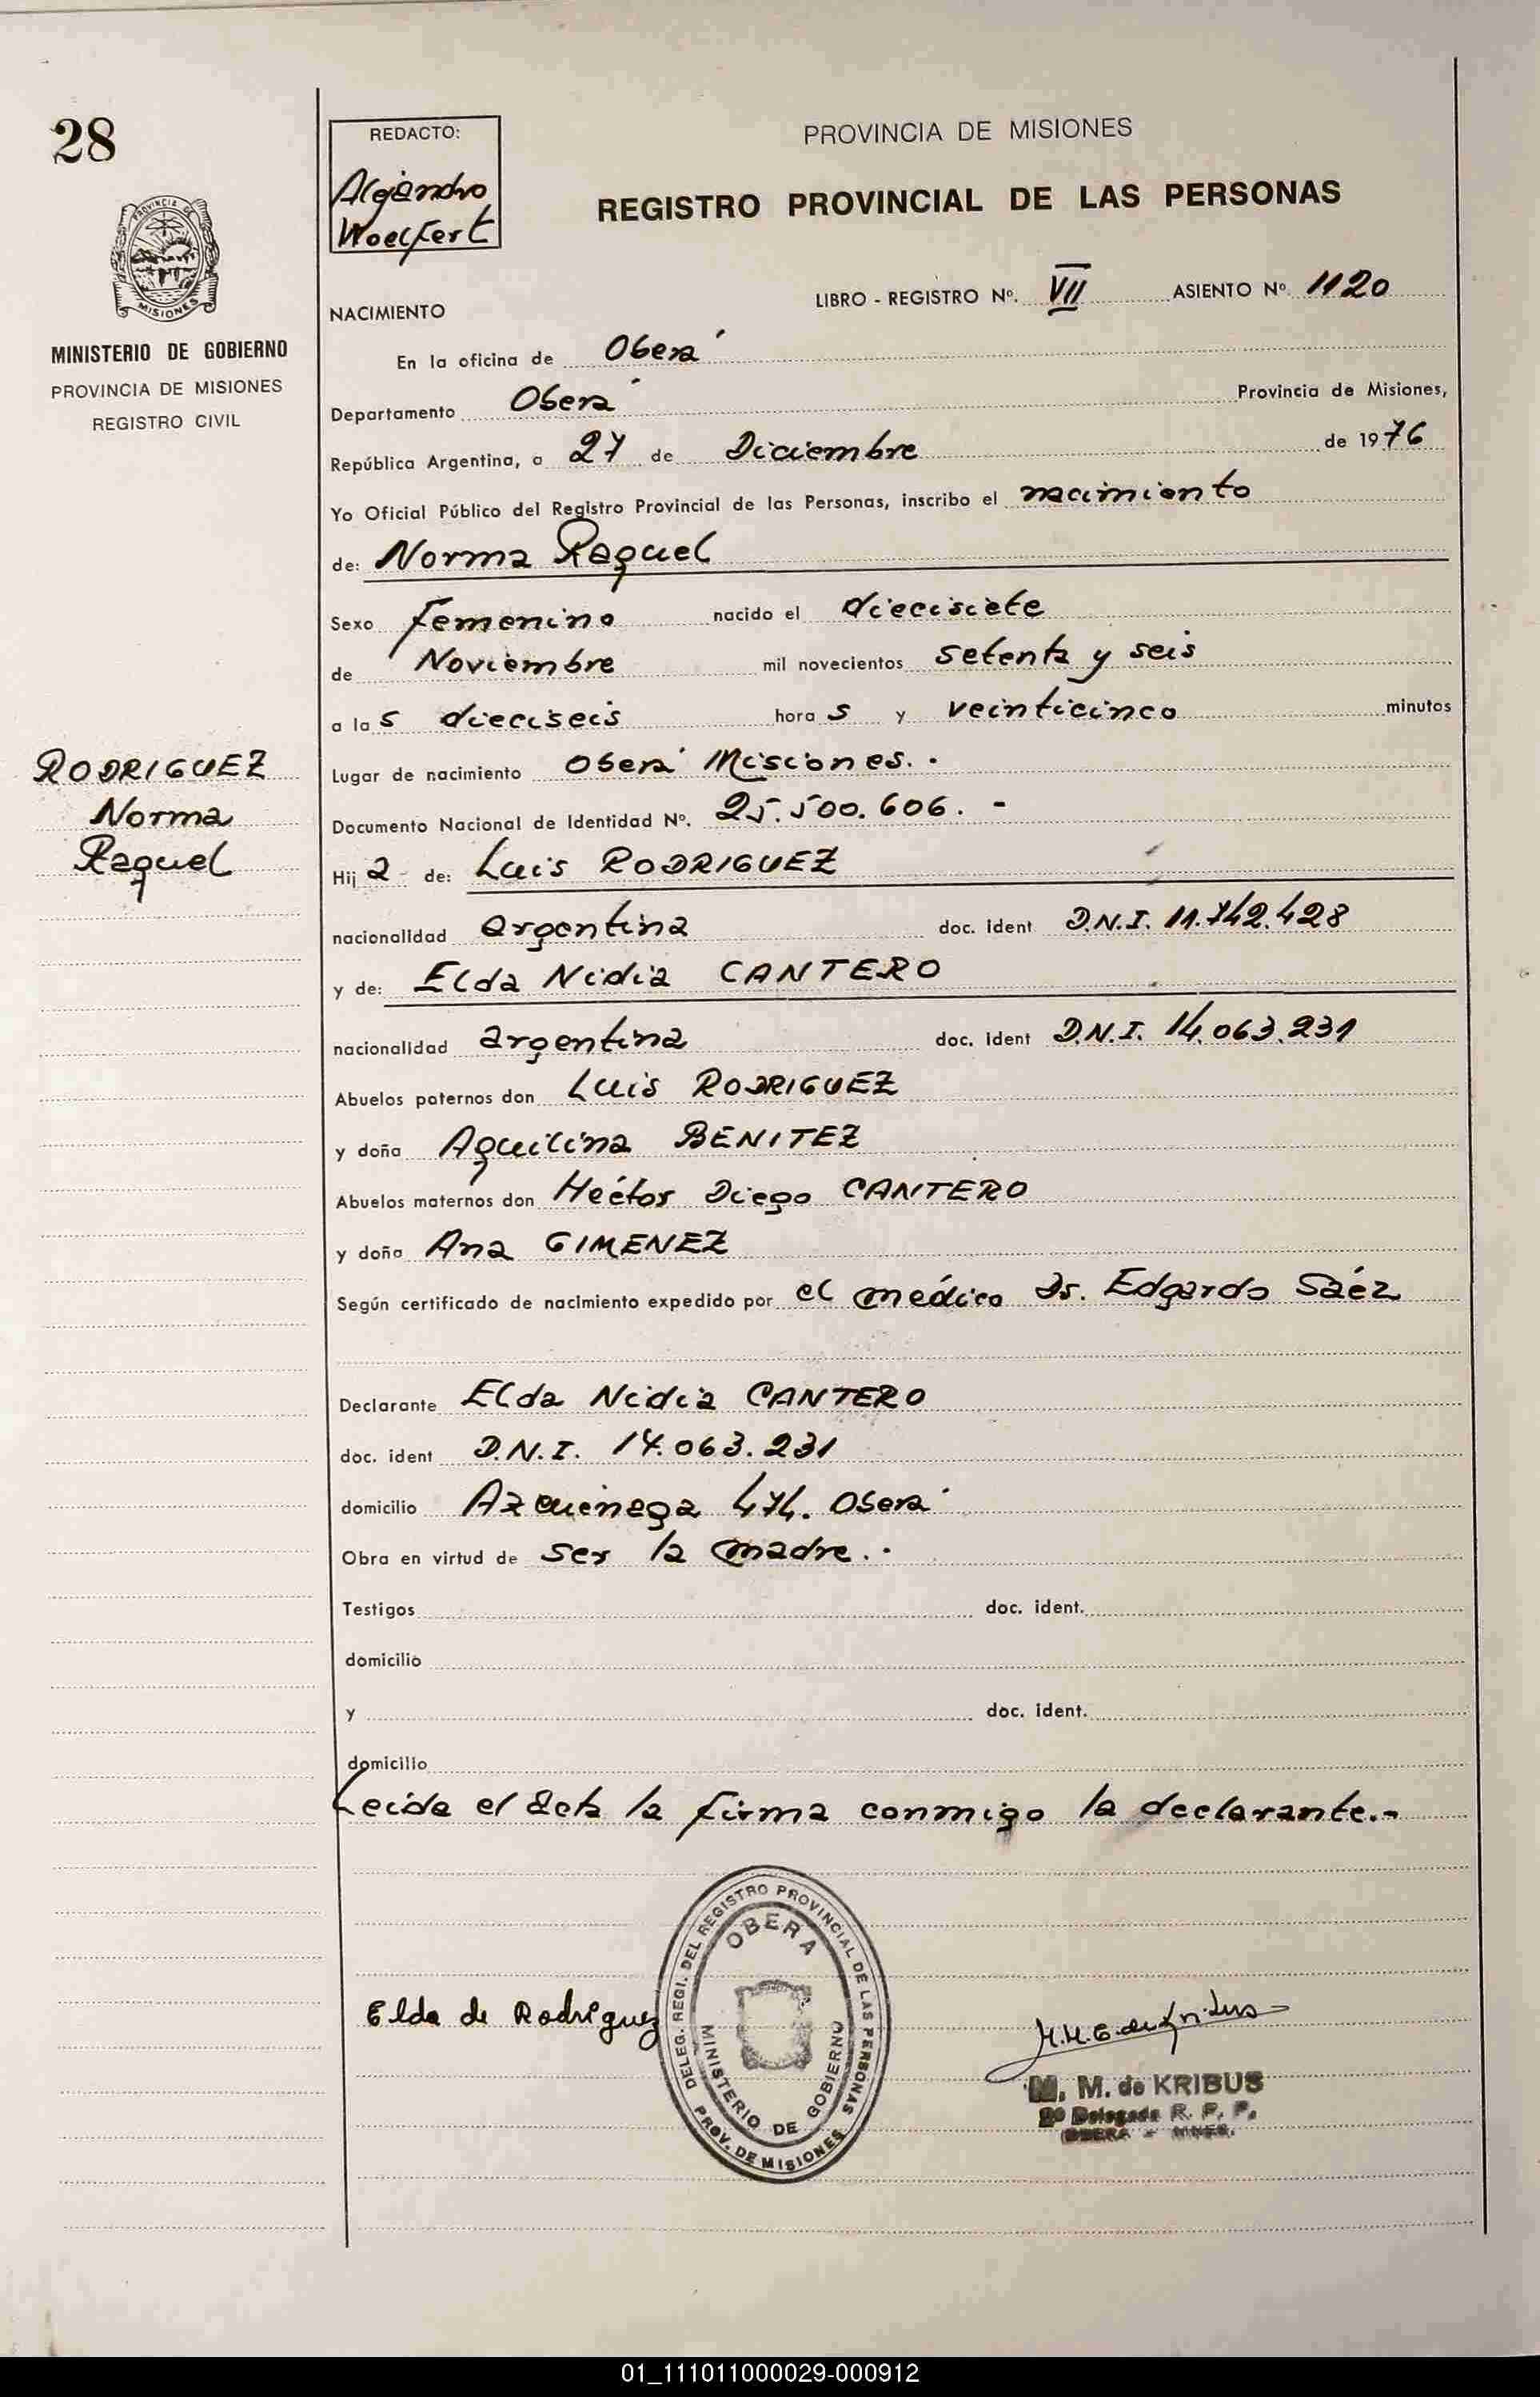 28
PROVINCIA DE MISIONES
MINISTERIO DE GOBIERNO
PROVINCIA DE MISIONES
REGISTRO CIVIL
RODRIGUEZ
Norma
Raquel
REDACTO:
Alejandro
Woelfert
PROVINCIA DE MISIONES
REGISTRO PROVINCIAL DE LAS PERSONAS
LIBRO - REGISTRO Nº. VII ASIENTO Nº. 1120
NACIMIENTO
En la oficina de Oberá
Departamento Oberá Provincia de Misiones,
República Argentina, a 27 de Diciembre de 1976
Yo Oficial Público del Registro Provincial de las Personas, inscribo el nacimiento
de: Norma Raquel
Sexo femenino nacido el diecisiete
de Noviembre mil novecientos setenta y seis
a las dieciseis horas y veinticinco minutos
Lugar de nacimiento Oberá Misiones.-
Documento Nacional de Identidad Nº. 25.500.606.-
Hija de: Luis RODRIGUEZ
nacionalidad argentina doc. ident D.N.I. 11.742.428
y de: Elda Nidia CANTERO
nacionalidad argentina doc. ident D.N.I. 14.063.231
Abuelos paternos don Luis RODRIGUEZ
y doña Aquilina BENITEZ
Abuelos maternos don Héctor Diego CANTERO
y doña Ana GIMENEZ
Según certificado de nacimiento expedido por el médico Dr. Edgardo Sáez
Declarante Elda Nidia CANTERO
doc. ident D.N.I. 14.063.231
domicilio Azcuénaga 474. Oberá
Obra en virtud de ser la madre.-
Testigos doc. ident.
domicilio
y doc. ident.
domicilio
Leida el acta la firma conmigo la declarante.-
Elda de Rodríguez
DELEG. REGI. DEL REGISTRO PROVINCIAL DE LAS PERSONAS
OBERA
MINISTERIO DE GOBIERNO
PROV. DE MISIONES
M. M. de KRIBUS
2º Delegada R. P. P.
OBERA - MNES.
01_111011000029-000912